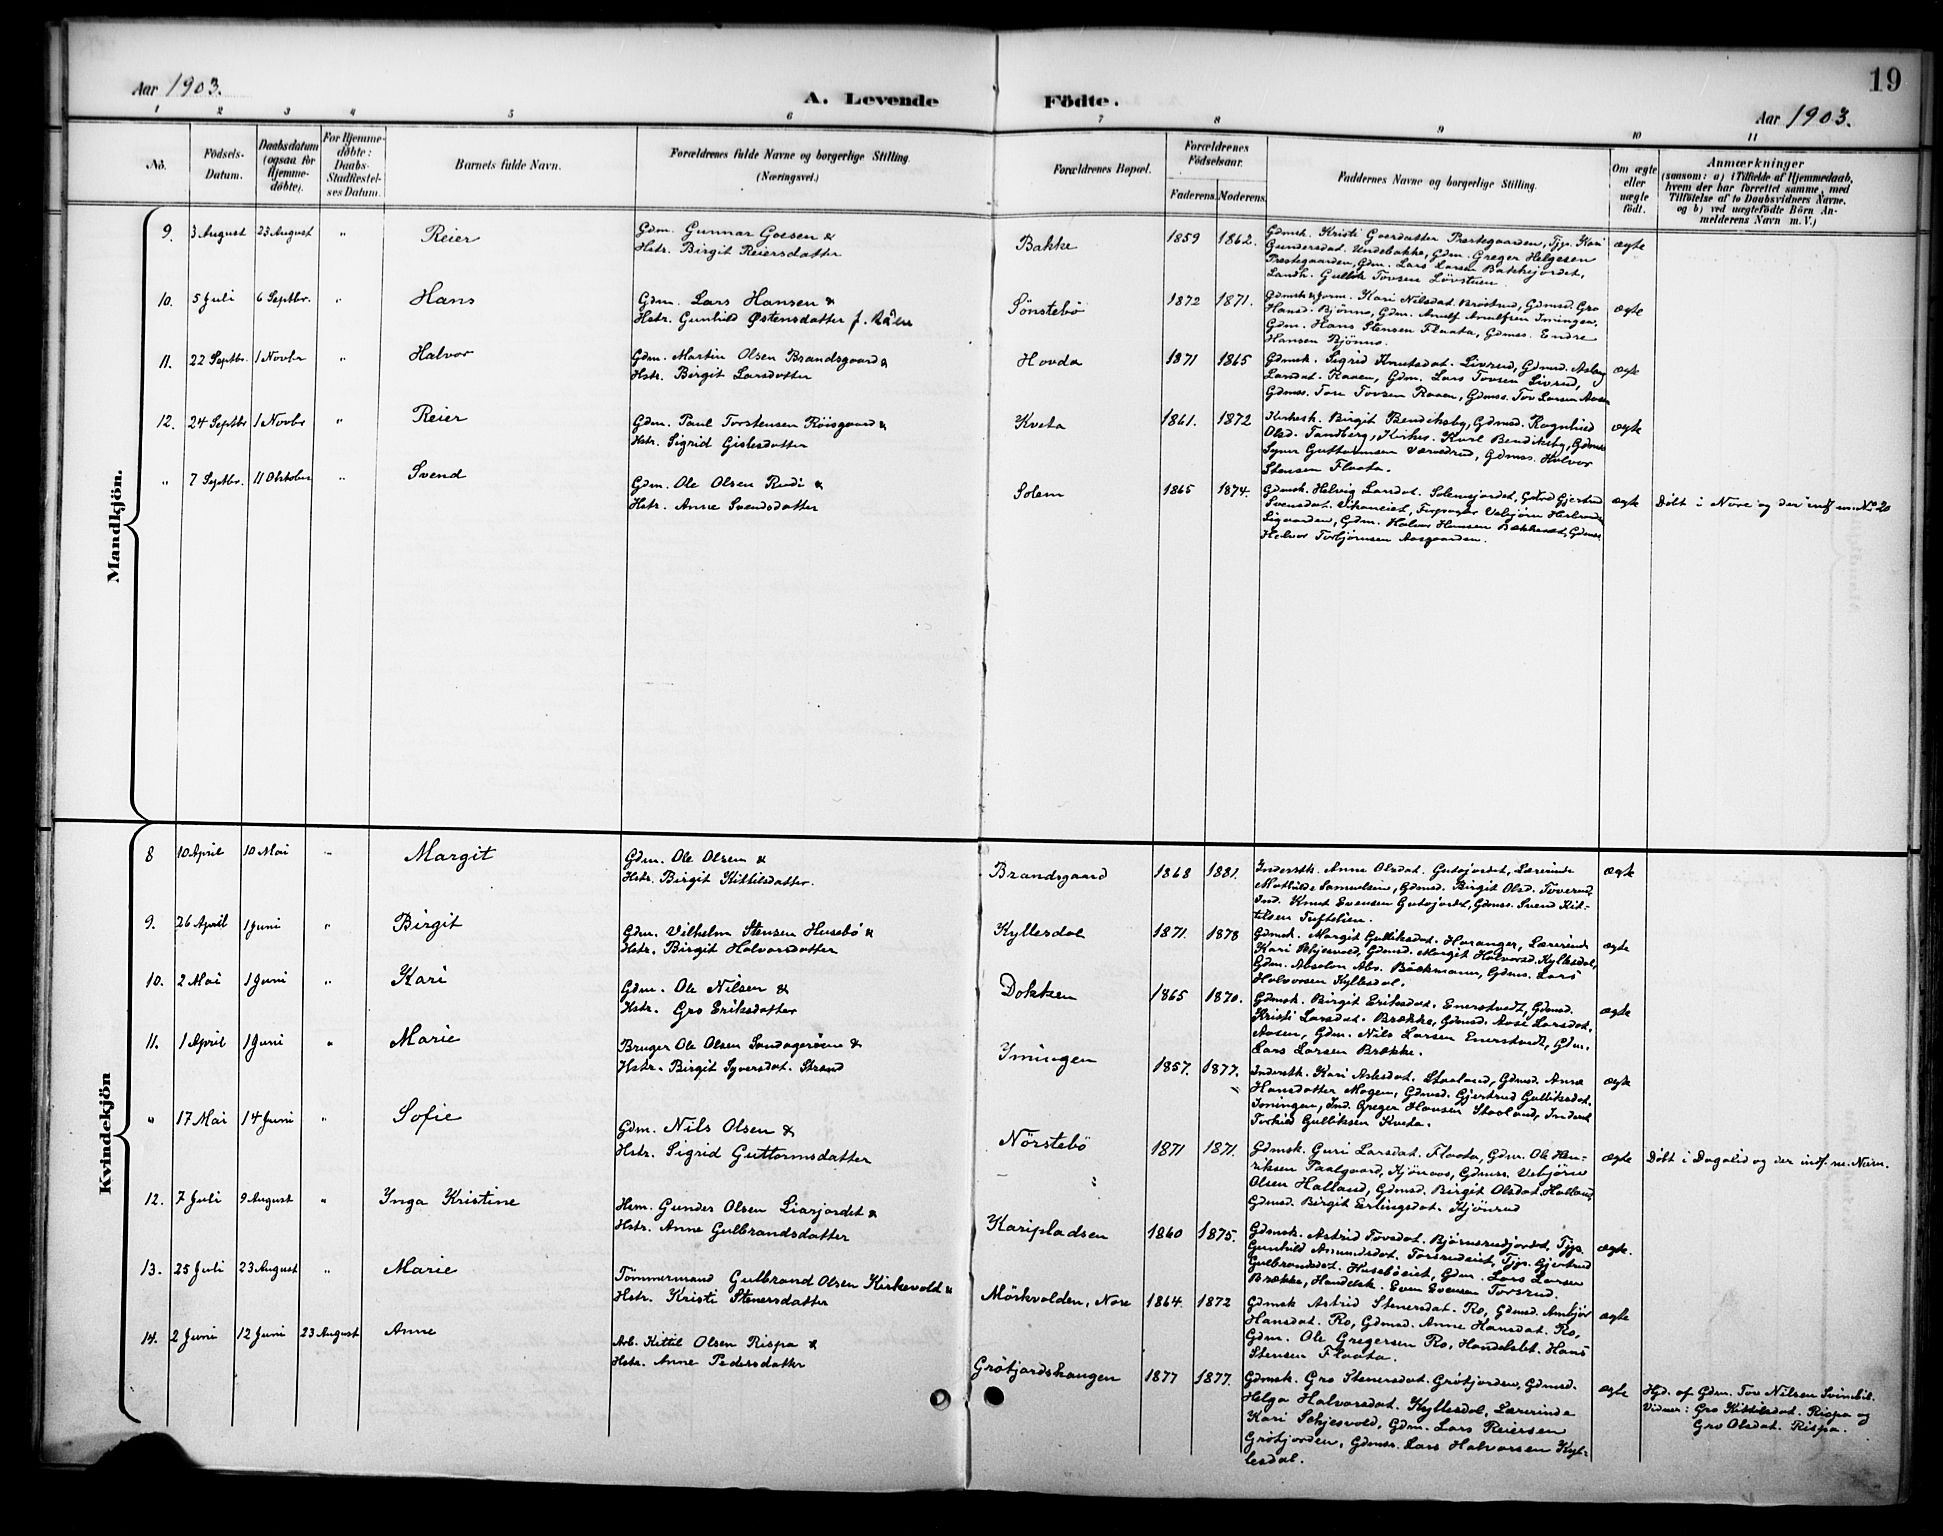 19
Aar 1903.
A. Levende Födte.
Aar 1903.
1 2 3 4 5 6 7 8 9 10 11
No.
Födsels-Datum.
Daabsdatum (ogsaa for Hjemme-døbte).
For Hjemme-døbte: Daabs-Stadfæstel-ses Datum.
Barnets fulde Navn.
Forældrenes fulde Navne og borgerlige Stilling. (Næringsvei.)
Forældrenes Bopæl.
Forældrenes Födselsaar.
Faderens. Moderens.
Faddernes Navne og borgerlige Stilling.
Om ægte eller uægte födt.
Anmærkninger
(saasom: a) i Tilfælde af Hjemmedaab,
hvem der har forrettet samme, med
Tilföielse af to Daabsvidners Navne.
og b) ved uægtefödte Börn An-
melderens Navn m. V.)
Mandkjön.
9. 3 August 23 August " Reier
Gdm. Gunnar Goesen &
Hstr. Birgit Reiersdatter
Bakke 1859 1862.
Gdmsk. Kristi Goesdatter Prestegaarden, Tjp. Kari
Gundersdat. Undebakke, Gdm. Greger Helgesen
Prestegaarden, Gdm. Lars Larsen Bakkejordet,
Landh. Gullik Tovsen Lövstuen.
ægte
10. 5 Juli 6 Septbr. " Hans
Gdm. Lars Hansen &
Hstr. Gunhild Østensdatter
Sönstebö 1872 1871.
Gdmsk & Jorm. Kari Nilsdat. Bröstrud, Gdmsd. Gro
Hansd. Bjönno, Gdm. Anulf Anulfsen Imingen,
Gdm. Hans Stensen Flaata, Gdmss. Endre
Hansen Bjönno.
ægte
11. 22 Septbr. 1 Novbr " Halvor
Gdm. Martin Olsen Brandsgaard &
Hstr. Birgit Larsdatter
Hovda 1871 1865
Gdmsk. Sigrid Knutsdat. Livrud, Gdmsd. Aslaug
Larsdat. Raaen, Gdm. Lars Tovsen Livrud,
Gdmss. Tore Tovsen Raaen, Gdmss. Tov Larsen Aasen
ægte
12. 24 Septbr 1 Novbr " Reier
Gdm. Paul Torstensen Röisgaard &
Hstr. Sigrid Gislesdatter
Kveta 1861. 1872
Kirkesk. Birgit Bendiksby, Gdmsd. Ragnhild
Olsd. Tandberg, Kirkes. Karl Bendiksby, Gdmss
Syver Guttormsen Værvedrud, Gdmss. Halvor
Stensen Flaata.
ægte
" 7 Septbr. 11 Oktober " Svend
Gdm. Ole Olsen Rudi &
Hstr. Anne Svendsdatter
Solem 1865 1874.
Gdmsk. Helvig Larsdat. Solemsjordet, Gdmsd Gjertrud
Svensdat. Vikaneiet, Vebjörn
Sigaarden, Gdm. Halvor Hansen Bækkesæt, Gdmss
Halvor Torbjörnsen Aasgaarden.
ægte
Döbt i Nore og der indf m. No 20
Kvindekjön
8 10 April 10 Mai " Margit
Gdm. Ole Olsen &
Hstr. Birgit Kittilsdatter.
Brandsgaard 1868 1881.
Inderstk. Anne Olsdat. Gutujordet, Lærerinde
Mathilde Samuelsen, Gdmsd. Birgit Olsd. Töverud,
Ind. Knut Evensen Gutujordet, Gdmss. Svend Kit-
tilsen Tuftelien.
ægte
9. 26 April 1 Juni " Birgit
Gdm. Vilhelm Stensen Husebö &
Hstr. Birgit Halvorsdatter
Kyllesdal 1871. 1878
Gdmsk. Margit Gulliksdat. Haranger, Lærerinde
Kari Skjesvold, Gdmsd. Margit Halvorsd. Kyllesdal,
Gdm. Absalon Abr. Bäckmann, Gdmss. Lars
Halvorsen Kyllesdal.
ægte
10. 2 Mai 1 Juni " Kari
Gdm. Ole Nilsen &
Hstr. Gro Eriksdatter
Dokken 1865 1870.
Gdmsk. Birgit Eriksdat. Enerstvedt, Gdmsd.
Kristi Larsdat. Brække, Gdmsd. Aase Larsdat.
Aasen, Gdm. Nils Larsen Enerstvedt, Gdm.
Lars Larsen Brække.
ægte
11. 1 April 1 Juni " Marie
Bruger Ole Olsen Sandageröen &
Hstr. Birgit Syversdat. Strand
Imingen 1857. 1877.
Inderstk. Kari Aslesdat. Staaland, Gdmsd. Anne
Hansdatter Mogen, Gdmsd. Gjertrud Gulliksdat.
Imingen, Ind. Greger Hansen Staaland, Inderst
Torkild Gulliksen Kveta.
ægte
" 17 Mai 14 Juni " Sofie
Gdm. Nils Olsen &
Hstr. Sigrid Guttormsdatter
Nörstebö 1871 1871.
Gdmsk. Guri Larsdat. Flaata, Gdm. Ole Hen-
riksen Paalgaard, Kjönaas, Gdmss. Vebjörn
Olsen Halland, Gdmsd. Birgit Olsdat. Halland,
Gdmsd. Birgit Erlingsdat. Kjönrud
ægte
Döbt i Dagalid og der indf. m. Num.
12. 7 Juli 9 August " Inga Kristine
Hsm. Gunder Olsen Liasjordet &
Hstr. Anne Gulbrandsdatter
Karipladsen 1860 1875.
Gdmsk. Astrid Tovsdat. Björnsrudjordet, Tjp.
Gunhild Amundsdat. Torsrudeiet, Tjp. Gjertrud
Gulbrandsdat. Huseböeiet, Gdm. Lars Larsen
Brække, Handelsk. Even Evensen Torsrud.
ægte.
13. 25 Juli 23 August " Marie
Tömmermand Gulbrand Olsen Kirkevold &
Hstr. Kristi Stenersdatter
Mörkvolden, Nore 1864. 1872
Gdmsk Astrid Stenersdat. Ro, Gdmsd. Ambjör
Hansdat. Ro, Gdmsd. Anne Hansdat. Ro,
Gdm. Ole Gregersen Ro, Handelsbt. Hans
Stensen Flaata.
ægte
14. 2 Juni 12 Juni 23 August Anne
Arb. Kittil Olsen Rispa &
Hstr. Anne Pedersdatter
Grötjordshaugen 1877 1877.
Gdmsk. Gro Stenersdat. Grötjorden, Gdmsd.
Helga Halvorsdat. Kyllesdal, Lærerinde
Kari Schjesvold, Gdm. Lars Reiersen
Grötjorden, Gdmss. Lars Halvorsen Kyl-
lesdal.
ægte
Hjd. af Gdm. Tov Nilsen Svinebil.
Vidner: Gro Kittilsdat. Rispa og
Gro Olsdat. Rispa.